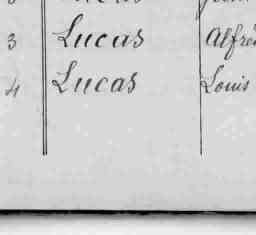 3 Lucas Alfré
4 Lucas Louis